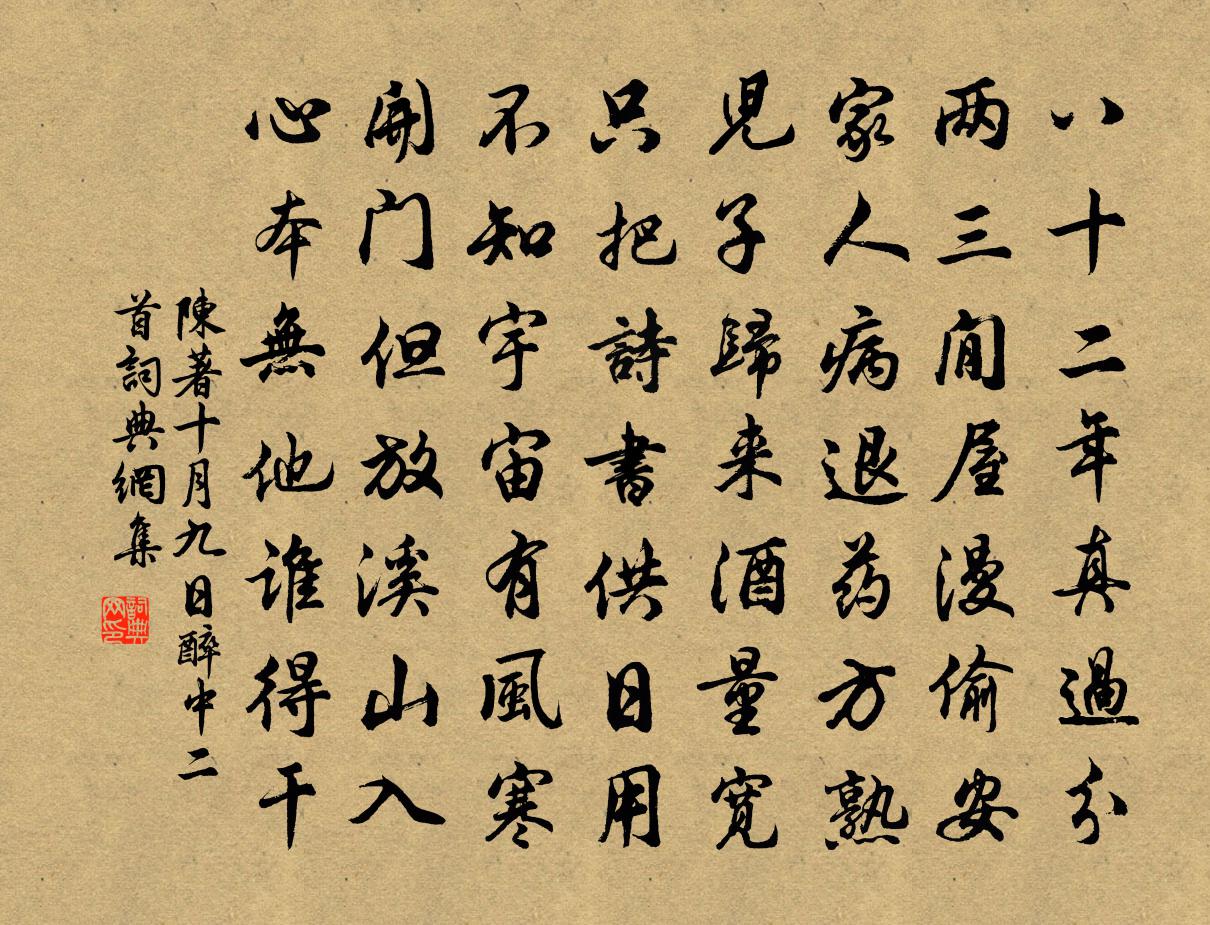 八十二年真過分
两三间屋漫偷安
家人病退药方熟
児子歸来酒量寛
只把詩書供日用
不知宇宙有風寒
開门但放溪山入
心本無他谁得干
陳著十月九日醉中二
首詞典網集
詞典
网印